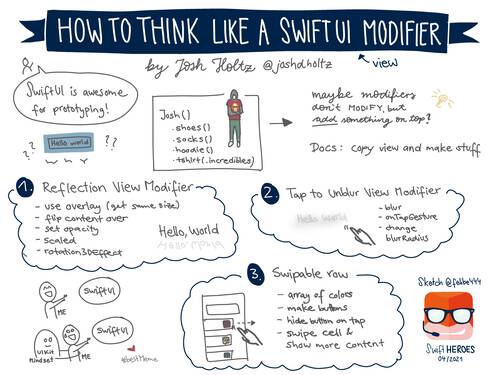 HOW TO THINK LIKE A SWIFTUI MODIFIER
view
by Josh Holtz @joshdholtz
SwiftUI is awesome
for prototyping!
??
Hello world
??
Josh()
.shoes()
.socks()
.hoodie()
.tshirt(.incredibles)
maybe modifiers
don't MODIFY, but
add something on top?
Docs: copy view and make stuff
1. Reflection View Modifier
- use overlay (get same size)
- flip content over
- set opacity
- scaled
- rotation3Deffect
Hello, World
Hello, World
2. Tap to Unblur View Modifier
Hello World
- blur
- onTapGesture
- change
blurRadius
3. Swipable row
- array of colors
- make buttons
- hide button on tap
- swipe cell &
show more content
SwiftUI
ME
SwiftUI
UIKit
mindset
ME
#bestMeme
Sketch @febbe444
Swift HEROES
04/2021